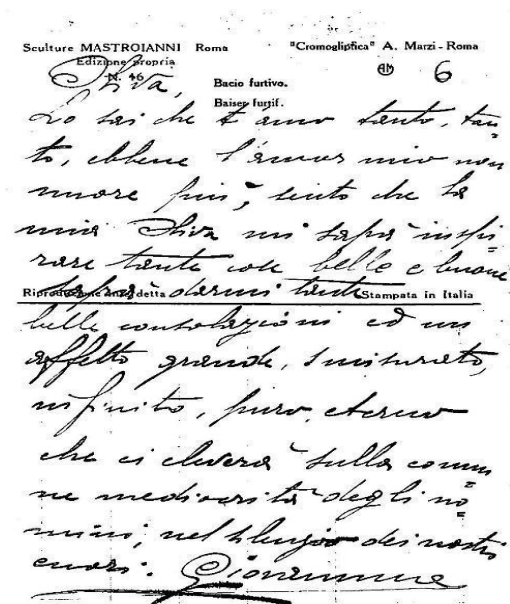 Sculture MASTROIANNI Roma "Cromoglipfica" A. Marzi - Roma
Edizione propria
N. 46 AM 6
Oliva, Bacio furtivo.
Baiser furtif.
Lo sai che t'amo tanto, tan=
to, ebbene l'amor mio non
muore più, sento che la
mia Oliva mi saprà inspi=
rare tante cose belle e buone
Riproduzione interdetta Stampata in Italia
saprà darmi tante
belle consolazioni ed un
affetto grande, smisurato,
infinito, puro, eterno
che ci eleverà sulla comu=
ne mediocrità degli uo=
mini, nel silenzio dei nostri
cuori. Giovannino